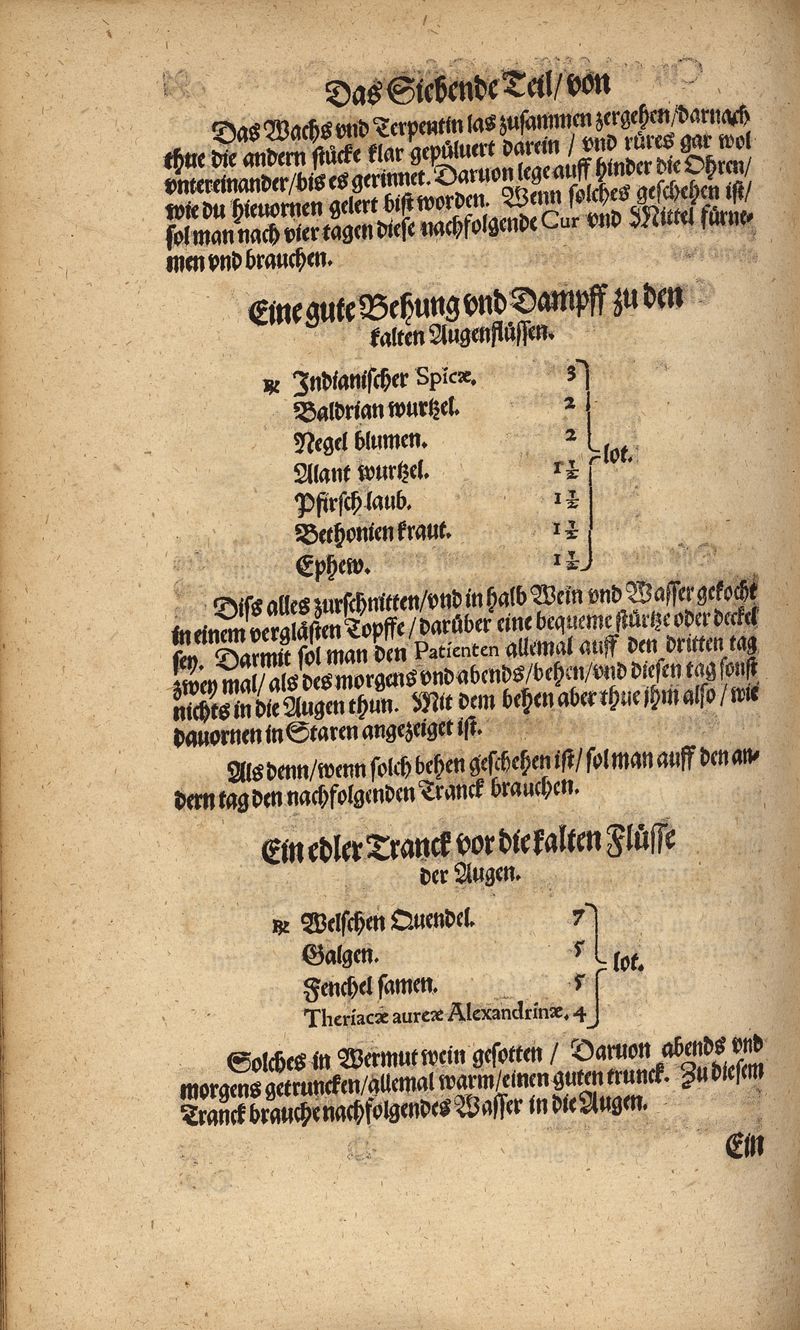 Das Siebende Teil/ von
Das Wachs vnd Terpentin las zusammen zergehen/darnach
thue die andern stücke klar gepůluert darein / vnd růres gar wol
vntereinander/bis es gerinnet. Daruon lege auff hinder die Ohren/
wie du hieuornen gelert bist worden. Wenn solches geschehen ist/
sol man nach vier tagen diese nachfolgende Cur vnd Mittel fürne-
men vnd brauchen.
Eine gute Behung vnd Dampff zu den
kalten Augenflůssen.
℞ Indianischer Spicæ. 3
Baldrian wurtzel. 2
Negel blumen. 2
lot.
Alant wurtzel. 1½
Pfirsch laub. 1½
Bethonien kraut. 1½
Ephew. 1½
Diss alles zurschnitten/vnd in halb Wein vnd Wasser gekocht
in einem verglåsten Topffe / darůber eine bequeme stůrtze oder deckel
sey. Darmit sol man den Patienten allemal auff den dritten tag
zwey mal/ als des morgens vnd abends/behen/vnd diesen tag sonst
nichts in die Augen thun. Mit dem behen aber thue jhm also / wie
dauornen in Staren angezeiget ist.
Als denn/wenn solch behen geschehen ist/ sol man auff den an-
dern tag den nachfolgenden Tranck brauchen.
Ein edler Tranck vor die kalten Flůsse
der Augen.
℞ Welschen Quendel. 7
Galgen. 5
lot.
Fenchel samen. 5
Theriacæ aureæ Alexandrinæ. 4
Solches in Wermut wein gesotten / Daruon abends vnd
morgens getruncken/allemal warm/einen guten trunck. Zu diesem
Tranck brauche nachfolgendes Wasser in die Augen.
Ein